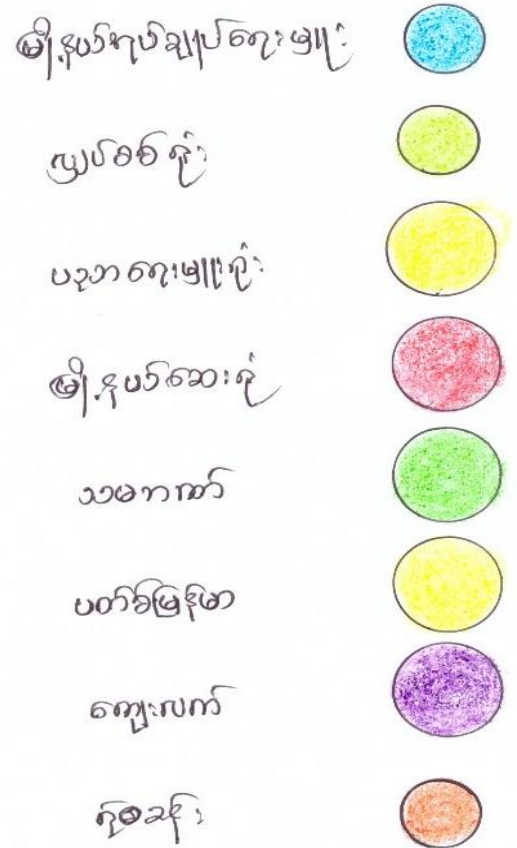 မြို့နယ်အုပ်ချုပ်ရေးမှူး
လျှပ်စစ်ရုံး
ပညာရေးမှူးရုံး
မြို့နယ်ဆေးရုံ
သမဘဏ်
ပတ်စ်မြန်မာ
ကျေးလက်
ရဲစခန်း